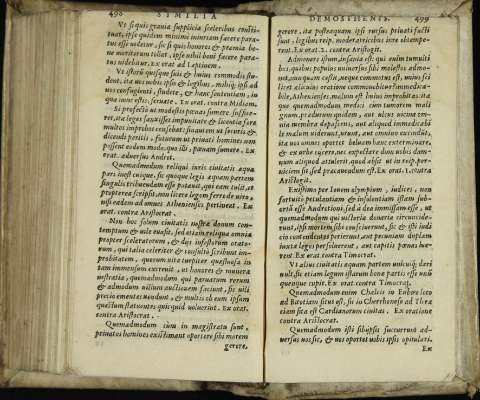 498 SIMILIA
Vt si quis grauia supplicia sceleribus consti-
tuat, ipse quidem minime iniuriam facere para-
tus esse uidetur, sic si quis honores & præmia be-
ne meritorum tollat, ipse nihil boni facere para-
tus uidebitur. Ex orat. ad Leptinem.
Vt istorum quisque suis & huius commodis stu-
dent, ita uos uobis ipsis & legibus,
uos confugienti, studete, & hanc sententiam, in
qua nunc estis, seruate. Ex orat. contra Midiam.
Si profecto ut modestis pœnas sumere suffice-
ret, ita leges sanctisses impunitate & licentia fore
multos improbos censebat: sin autem ut securis &
dicendi peritis, futurum ut priuati homines non
possent eodem modo, quo illi, pœnam sumere. Ex
orat. aduersus Androt.
Quemadmodum reliqui iuris ciuitatis æqua
pars inest cuique, sic quoque legis æquam partem
singulis tribuendam esse putauit, qui eam tulit, et
propterea scripsit, non licere legem ferre de uiro,
nisi eadem ad omnes Athenienses pertineat. Ex
orat. contra Aristocrat.
Non hoc solum ciuitatis nostræ donum con-
temptum & uile euasit, sed etiam reliqua omnia
propter sceleratorum, & dijs infestorum orato-
rum, qui talia celeriter & consulto scribunt im-
probitatem, quorum uita turpiter quæstuosa in
tam immensum excreuit, ut honores & munera
uestratia, quemadmodum qui paruarum rerum
& admodum uilium auctionem faciunt, sic uili
precio ementes uendunt, & multis ob eum ipsum
quæstum statuentes quicquid uoluerint. Ex orat.
contra Aristocrat.
Quemadmodum cùm in magistratu sunt,
priuatos homines existimant oportere sibi morem
gerere,
DEMOSTHENIS. 499
gerere, ita postea quam ipsi rursus priuati facti
sunt, legibus reip. moderatricibus iure obtempe-
rent. Ex orat. 1. contra Aristogit.
Admouere illum, insania est: qui enim tumulti-
bus, quibus populus uniuersus sibi molestus admo-
net, nunquam cessit, neque commotus est, unius sci
licet alicuius oratione commouebitur? immedica-
bile, Athenienses, malum est huius improbitas: ita
que quemadmodum medici cùm tumorem mali
gnum, prædurum quidem, aut ulcus uicina om-
nia membra depascens, aut aliquod immedicabi
le malum uiderint, urunt, aut omnino excindūt,
ita uos omnes oportet beluam hanc exterminare,
& ex urbe eijcere, nec expectare dum uobis dam-
num aliquod attulerit, quod absit ut in reip. per-
niciem fit sed præcauendum est. Ex orat. 1. contra
Aristogit.
Existimo per Iouem olympium, iudices, non
fortuitò petulantiam & insolentiam istam sub-
arsisse Androtioni, sed à dea immissam esse, ut
quemadmodum qui uictoria donaria circumcide-
runt, ipsi mortem sibi consciuerunt, sic & isti iudi
cio contendentes perierunt, aut pecuniam duplam
iuxta leges persoluerent, aut capitis pœnas lue-
rent Ex orat contra Timocrat.
Vt alius ciuitatis æquam partem unicuiq; dari
uult, sic etiam legum istarum bona partis esse uult
quemque cupit. Ex orat. contra Timocrat.
Quemadmodum enim Chalcis in Eubœa loco
ad Bœotiam situs est, sic in Cherrhoneso ad Thra
ciam sita est Cardianorum ciuitas. Ex oratione
contra Aristocrat.
Quemadmodum isti sibijpsis succurrunt ad-
uersus uos sic, & uos oportet uobis ipsis opitulari.
Ex